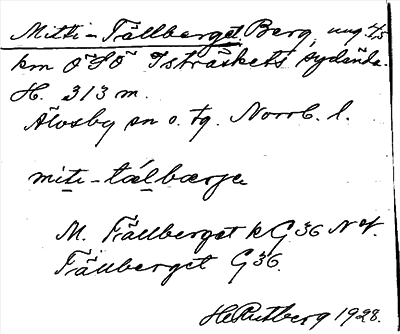 Mitti-Fällberget Berg, ung. 4,5
km ÖSÖ Isträskets sydände.
H. 313 m.
Älvsby sn o. tg. Norrb. l.
miti-tælbærje
M. Fällberget k G 36 NV.
Fällberget G 36.
H. Rutberg 1928.